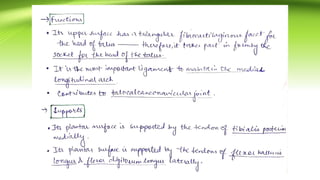 → Functions
• Its upper surface has a triangular fibrocartilaginous facet for
the head of talus — therefore, it takes part in forming the
socket for the head of the talus.
• It is the most important ligament to maintain the medial
longitudinal arch.
• Contributes to talocalcaneonavicular joint.
→ Supports
• Its plantar surface is supported by the tendon of tibialis posterior
medially.
• Its plantar surface is supported by the tendons of flexor hallucis
longus & flexor digitorum longus laterally.